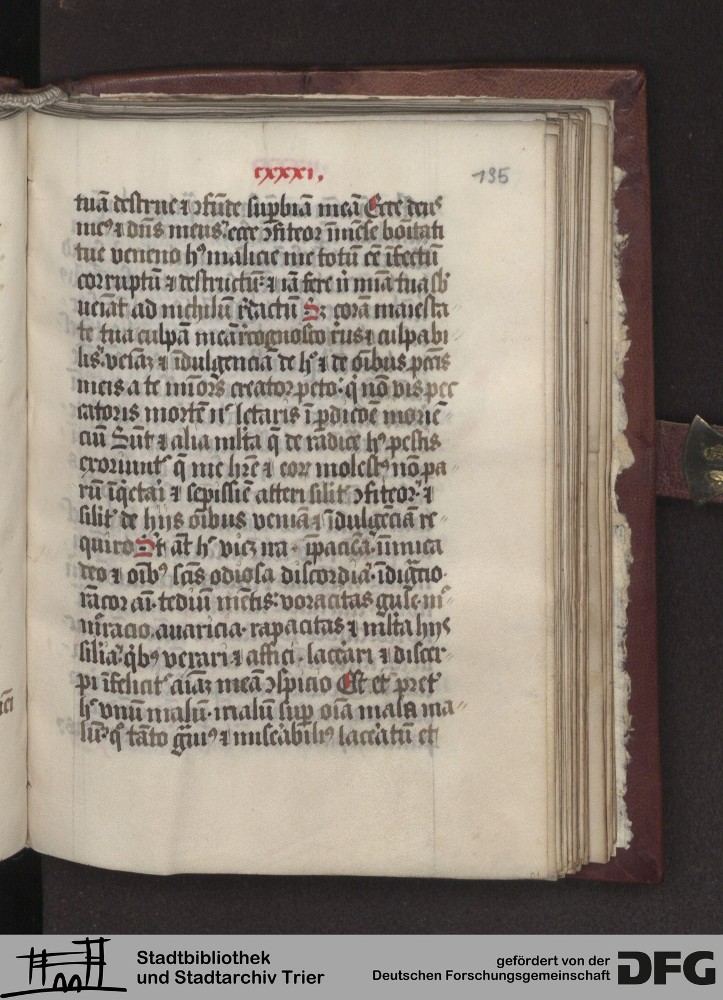 cxxxi.
135
tuā destrue ⁊ ɔfūde supbiā meā Ecce deꝰ
meꝰ ⁊ dn̄s meus ecce ɔfiteor īmēse bōitati
tue veneno hꝰ malicie me totū eē īfectū
corruptū ⁊ destructū ⁊ iā fere n̄ mīa tua sb
ueniāt ad nichilū rēdactū Sꝫ corā maiesta
te tua culpā meā recognosco reus ⁊ culpabi
lis veīaꝫ ⁊ īdulgenciā de hꝰ ⁊ de oībus pctīs
meis a te creator peto q̄ nō vis pec
catoris mortē letaris ī pdicōe moriē
ciū Sūt ⁊ alia mlta q̄ de radice hꝰ pestis
exoriunt q̄ me hr̄e ⁊ corde nō pa
rū īq̇etari ⁊ sepissie atteri silit ɔfiteor ⁊
silit de hijs oībus veniā ⁊ īdulgēciā re
quiro St āt h̄ vicꝫ ira īpaciēcia īimica
deo ⁊ oībꝰ scīs odiosa discordia īdigtio
rācor aī tediū mētis voracitas gule
muracio auaricia rapacitas ⁊ mlta hijs
silia q̇bꝰ vexari ⁊ affici lacerari ⁊ discer
pi īfelicit aīaꝫ meā ɔspicio Est et pret
h̄ vnū malū malū sup oīa mala ma
lū qꝰ tāto ⁊ miserabiliꝰ laceratū et
Stadtbibliothek
und Stadtarchiv Trier
gefördert von der
Deutschen Forschungsgemeinschaft
DFG